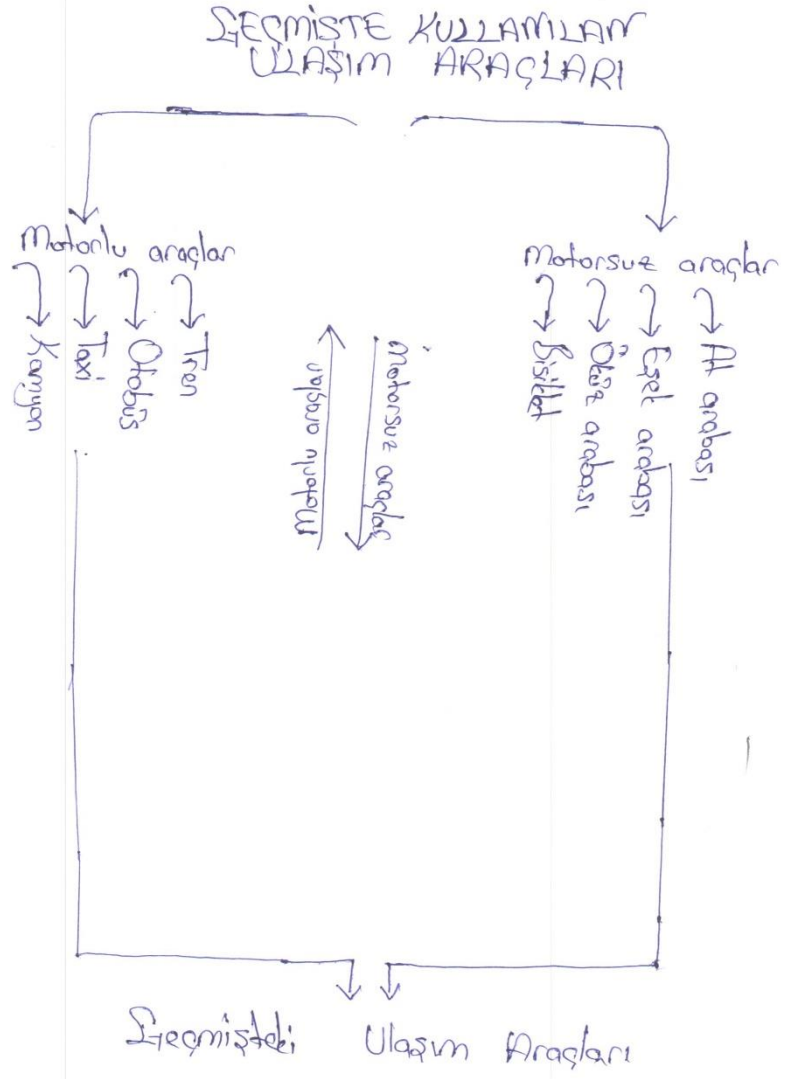 GEÇMİŞTE KULLANILAN
ULAŞIM ARAÇLARI
Motorlu araçlar
Kamyon
Taxi
Otobüs
Tren
Motorsuz araçlar
Bisiklet
Öküz arabası
Eşek arabası
At arabası
Motorlu araçlar
Motorsuz araçlar
Geçmişteki Ulaşım Araçları